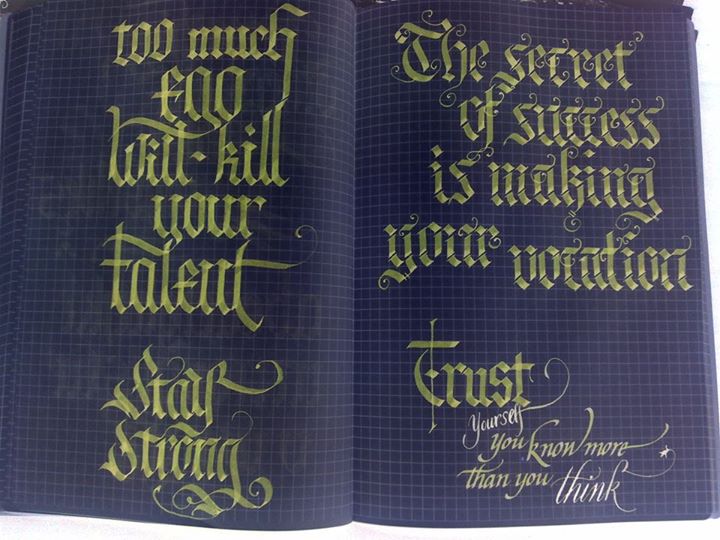 too much
Ego
Will-kill
your
talent
Stay
Strong
"The secret
of success
is making
your vocation
Trust
Yourself
you know more
than you think